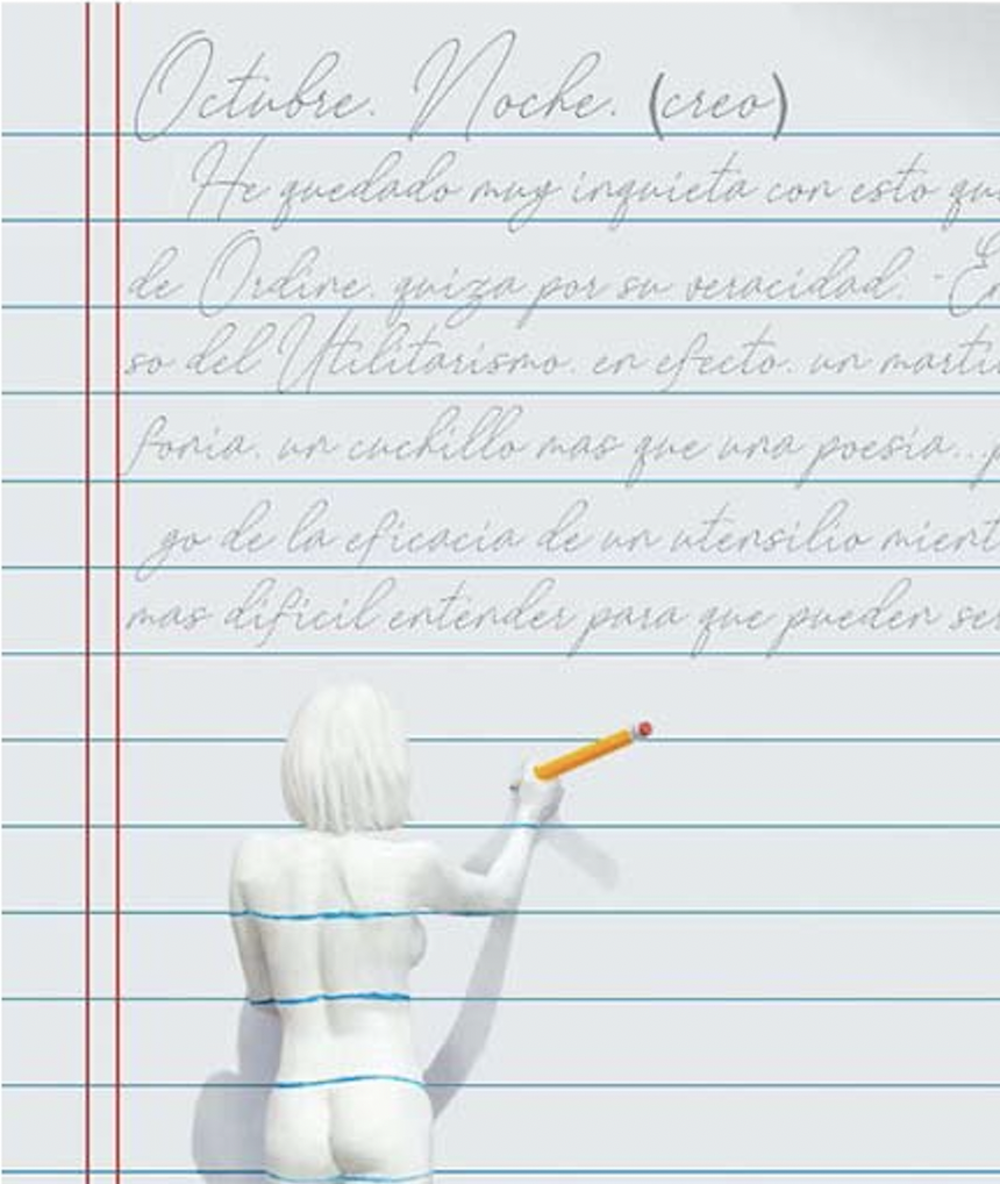 Octubre. Noche. (creo)
He quedado muy inquieta con esto qu
de Ordine. quiza por su veracidad. -En
so del Utilitarismo. en efecto. un marti
fonia. un cuchillo mas que una poesia.. p
go de la eficacia de un utensilio mient
mas dificil entender para que pueden se